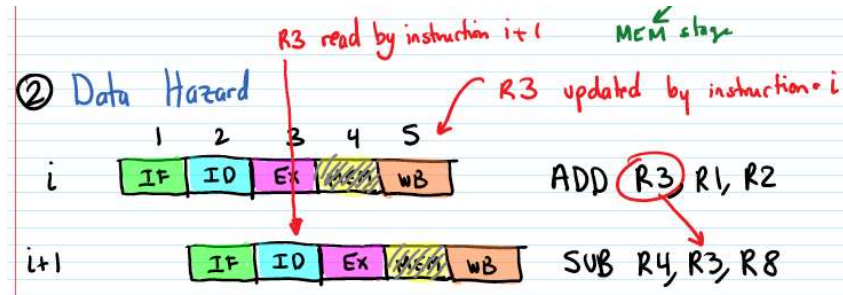 MEM stage
R3 read by instruction i+1
② Data Hazard
R3 updated by instruction i
1 2 3 4 5
i IF ID EX MEM WB ADD R3, R1, R2
i+1 IF ID EX MEM WB SUB R4, R3, R8